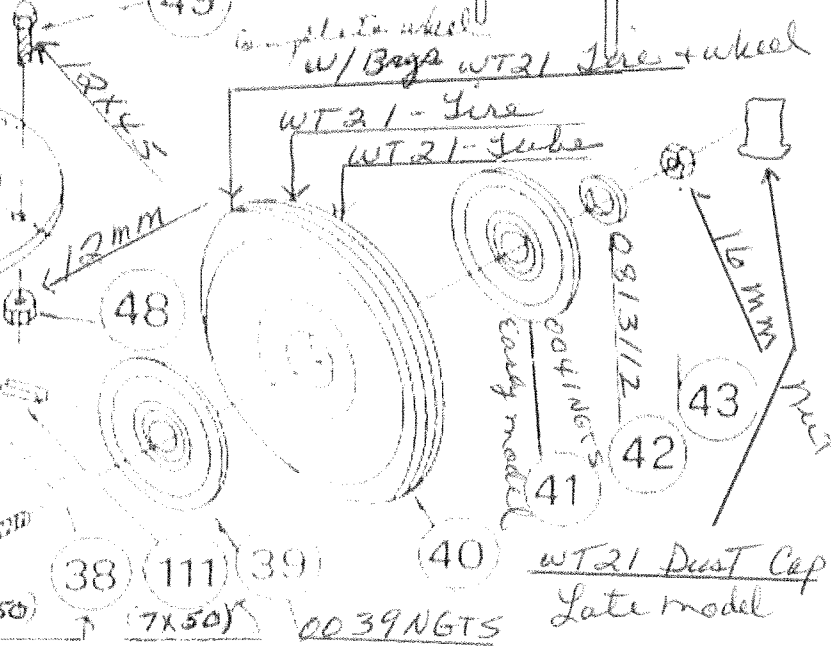 45
complete wheel
w/ Brgs WT21 Tire + wheel
12x45
WT21 - Tire
WT21 - Tube
12mm
48
16 mm
0813112
0041NGTS
Early model
nut
43
42
41
40
38
111
39
50)
(7x50)
0039NGTS
WT21 Dust Cap
Late model